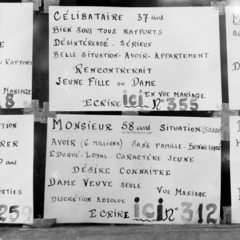 CÉLIBATAIRE 37 ans
BIEN SOUS TOUS RAPPORTS
DÉSINTÉRESSÉ - SÉRIEUX
BELLE SITUATION - AVOIR - APPARTEMENT
RENCONTRERAIT
JEUNE FILLE OU DAME
EN VUE MARIAGE
ECRIRE ici N° 355
MARIAGE
8.
MONSIEUR 58 ans SITUATION
AVOIR (6 MILLIONS) SANS FAMILLE - BONNE SANTÉ
EDUQUÉ - LOYAL - CARACTÈRE JEUNE
DÉSIRE CONNAITRE
DAME VEUVE SEULE
VUE MARIAGE
DISCRÉTION ABSOLUE
ECRIRE ici N° 312
259